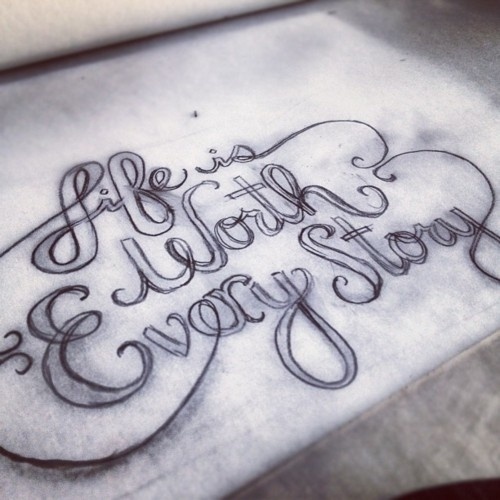 Life is
Worth
Every Story